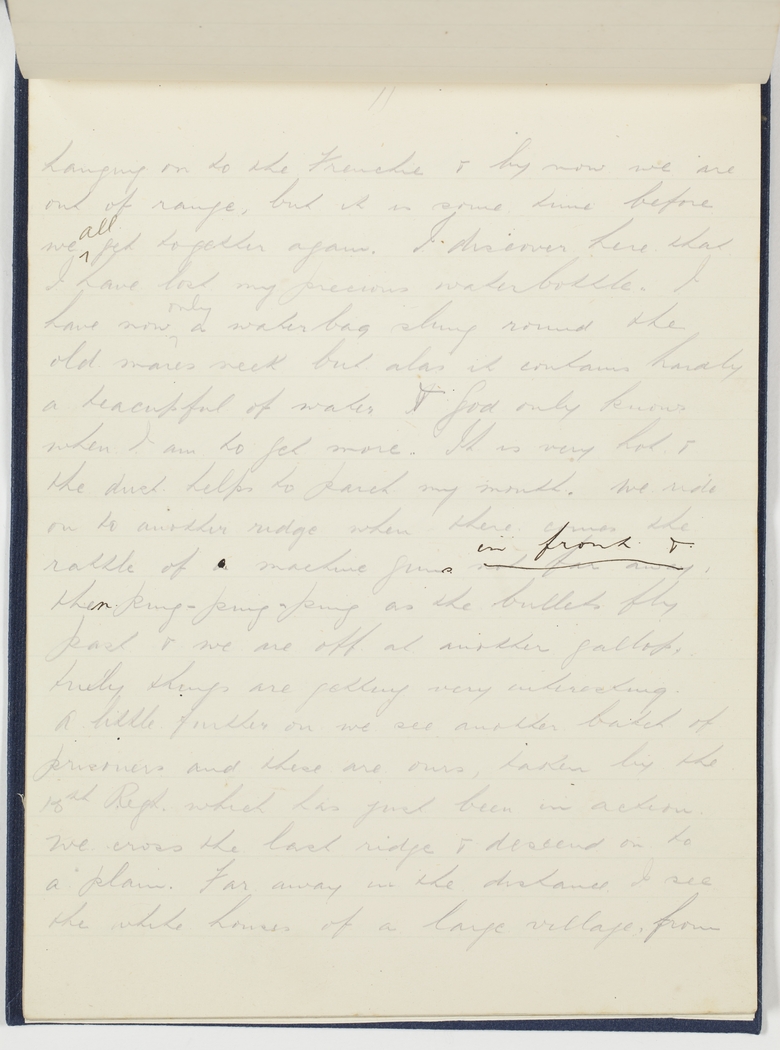 11
hanging on to the Frenchie & by now we are
out of range, but it is some time before
we all get together again. I discover here that
I have lost my precious waterbottle. I
have now only a waterbag slung round the
old mares neck but alas it contains hardly
a teacupful of water & God only knows
when I am to get more. It is very hot &
the dust helps to parch my mouth. We ride
on to another ridge when there comes the
in front &
rattle of a machine guns not far away,
then ping-ping-ping as the bullets fly
past & we are off at another gallop,
truly things are getting very interesting.
A little further on we see another batch of
prisoners and these are ours, taken by the
Regt. which has just been in action.
We cross the last ridge & descend on to
a plain. Far away in the distance I see
the white houses of a large village, from